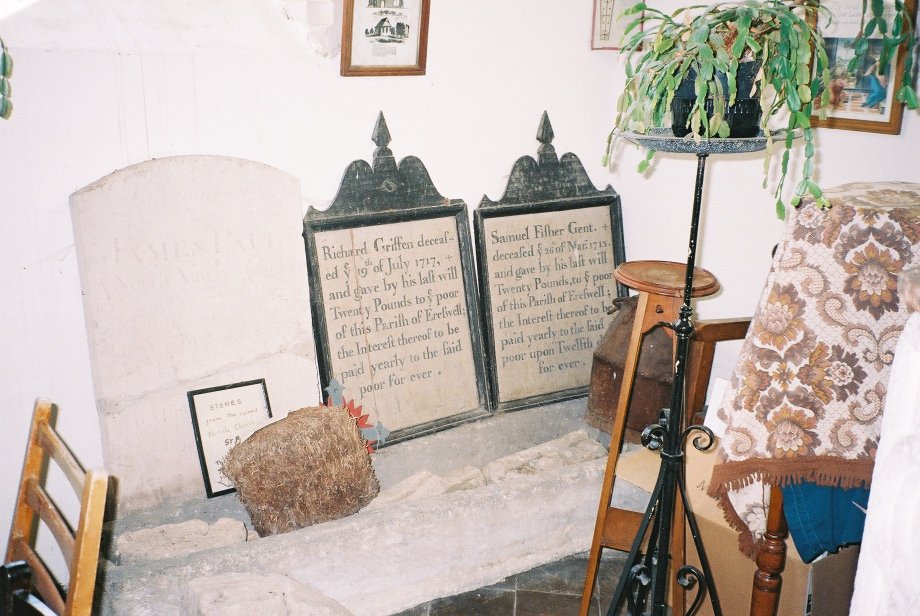 Richard Griffen deceaſ-
ed ẙ 19th of July 1717,
and gave by his laſt will
Twenty Pounds to ẙ poor
of this Pariſh of Ereſwell,
the Intereſt thereof to be
paid yearly to the ſaid
poor for ever .
Samuel Fiſher Gent.
deceaſed ẙ 26th of Mar: 1715.
and gave by his laſt will
Twenty Pounds, to ẙ poor
of this Pariſh of Ereſwell,
the Intereſt thereof to
paid yearly to the
poor upon Twelfth
for ever.
STONES
from the ruined
Parish Church